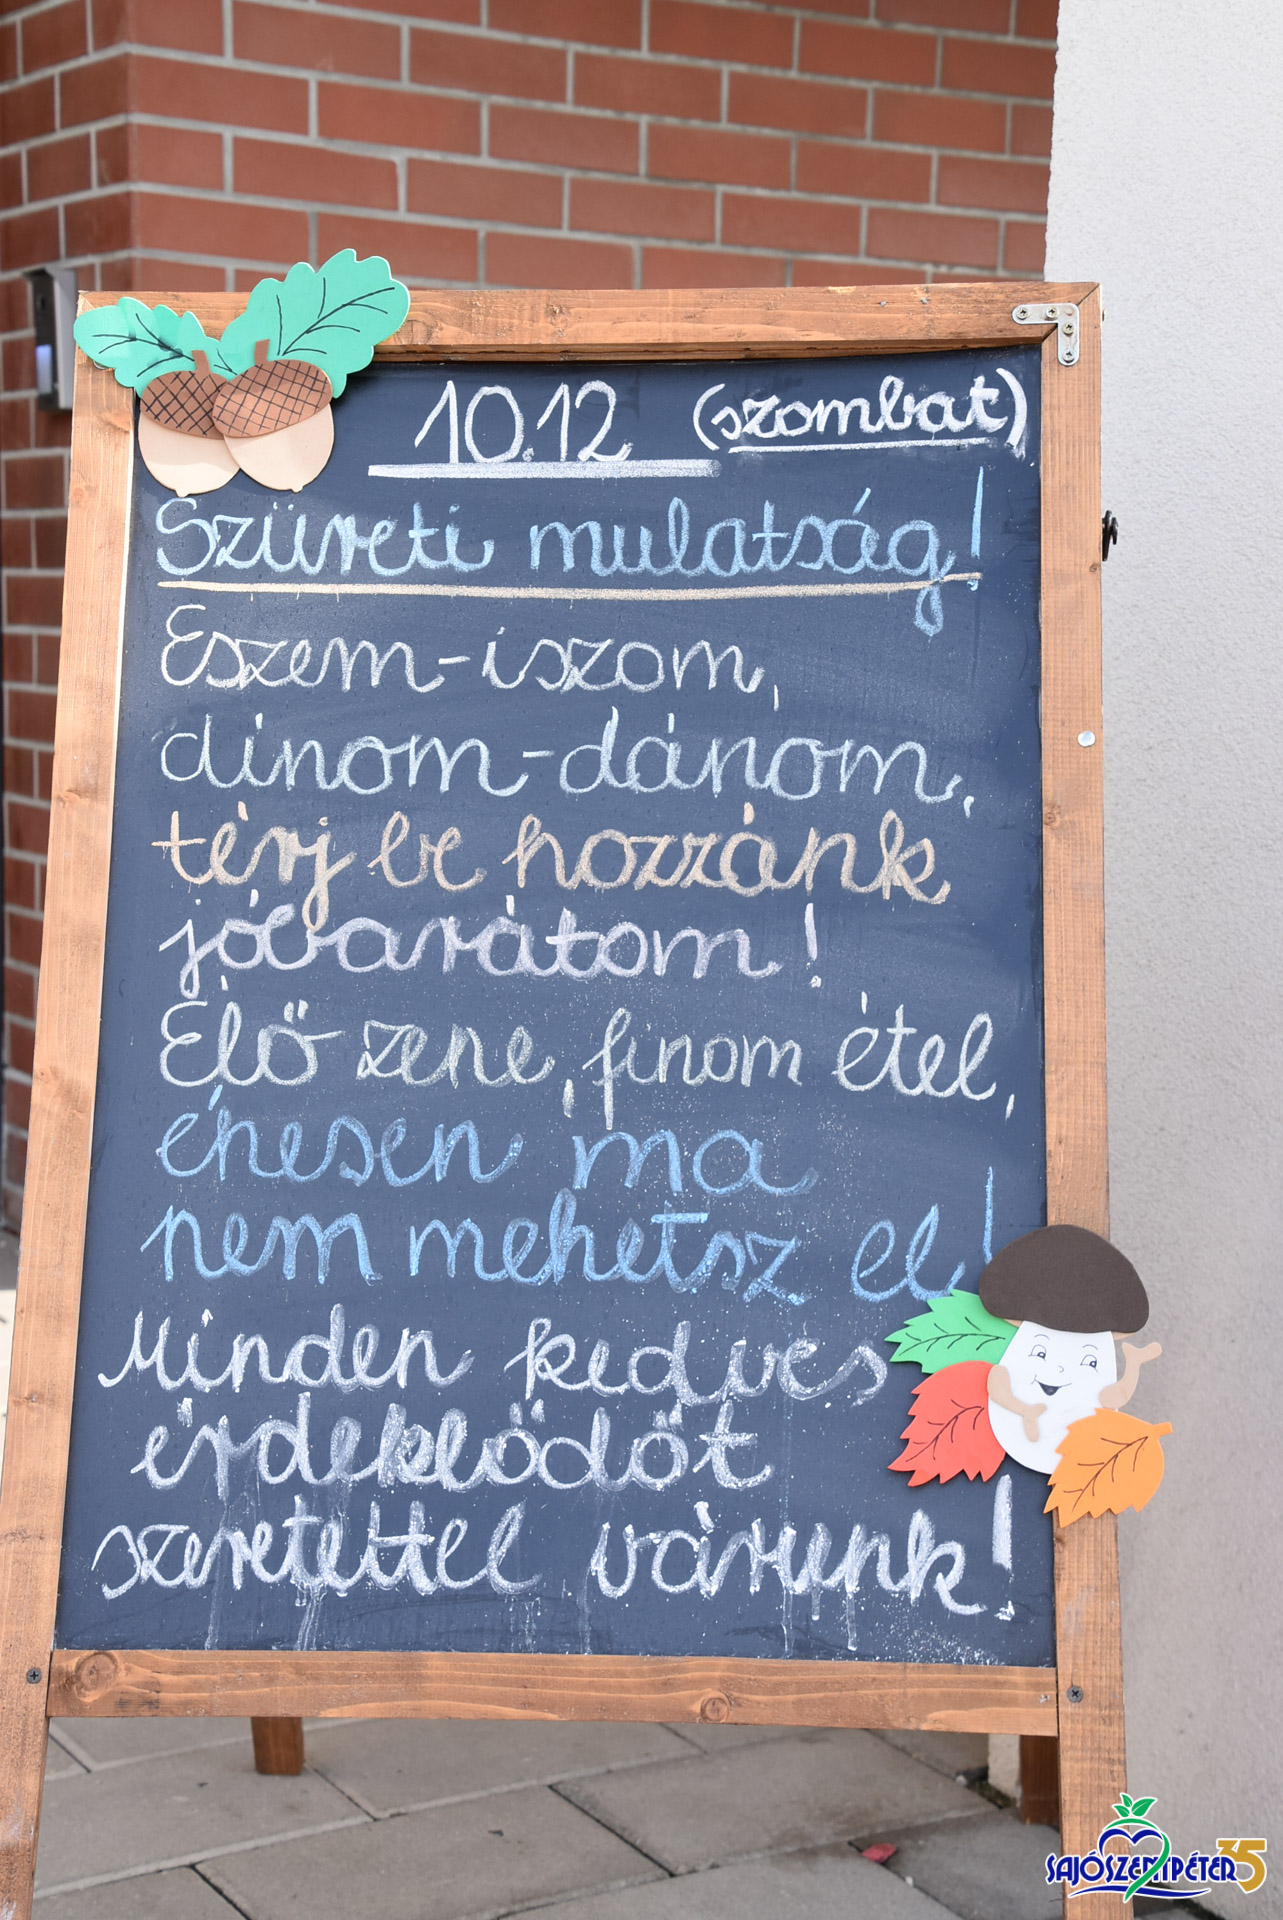 10.12 (szombat)
Szüreti mulatság!
Eszem-iszom,
dínom-dánom,
térj be hozzánk
jóbarátom!
Élő zene, finom étel,
éhesen ma
nem mehetsz el!
Minden kedves
érdeklődőt
szeretettel várunk!
SAJÓSZENTPÉTER 35